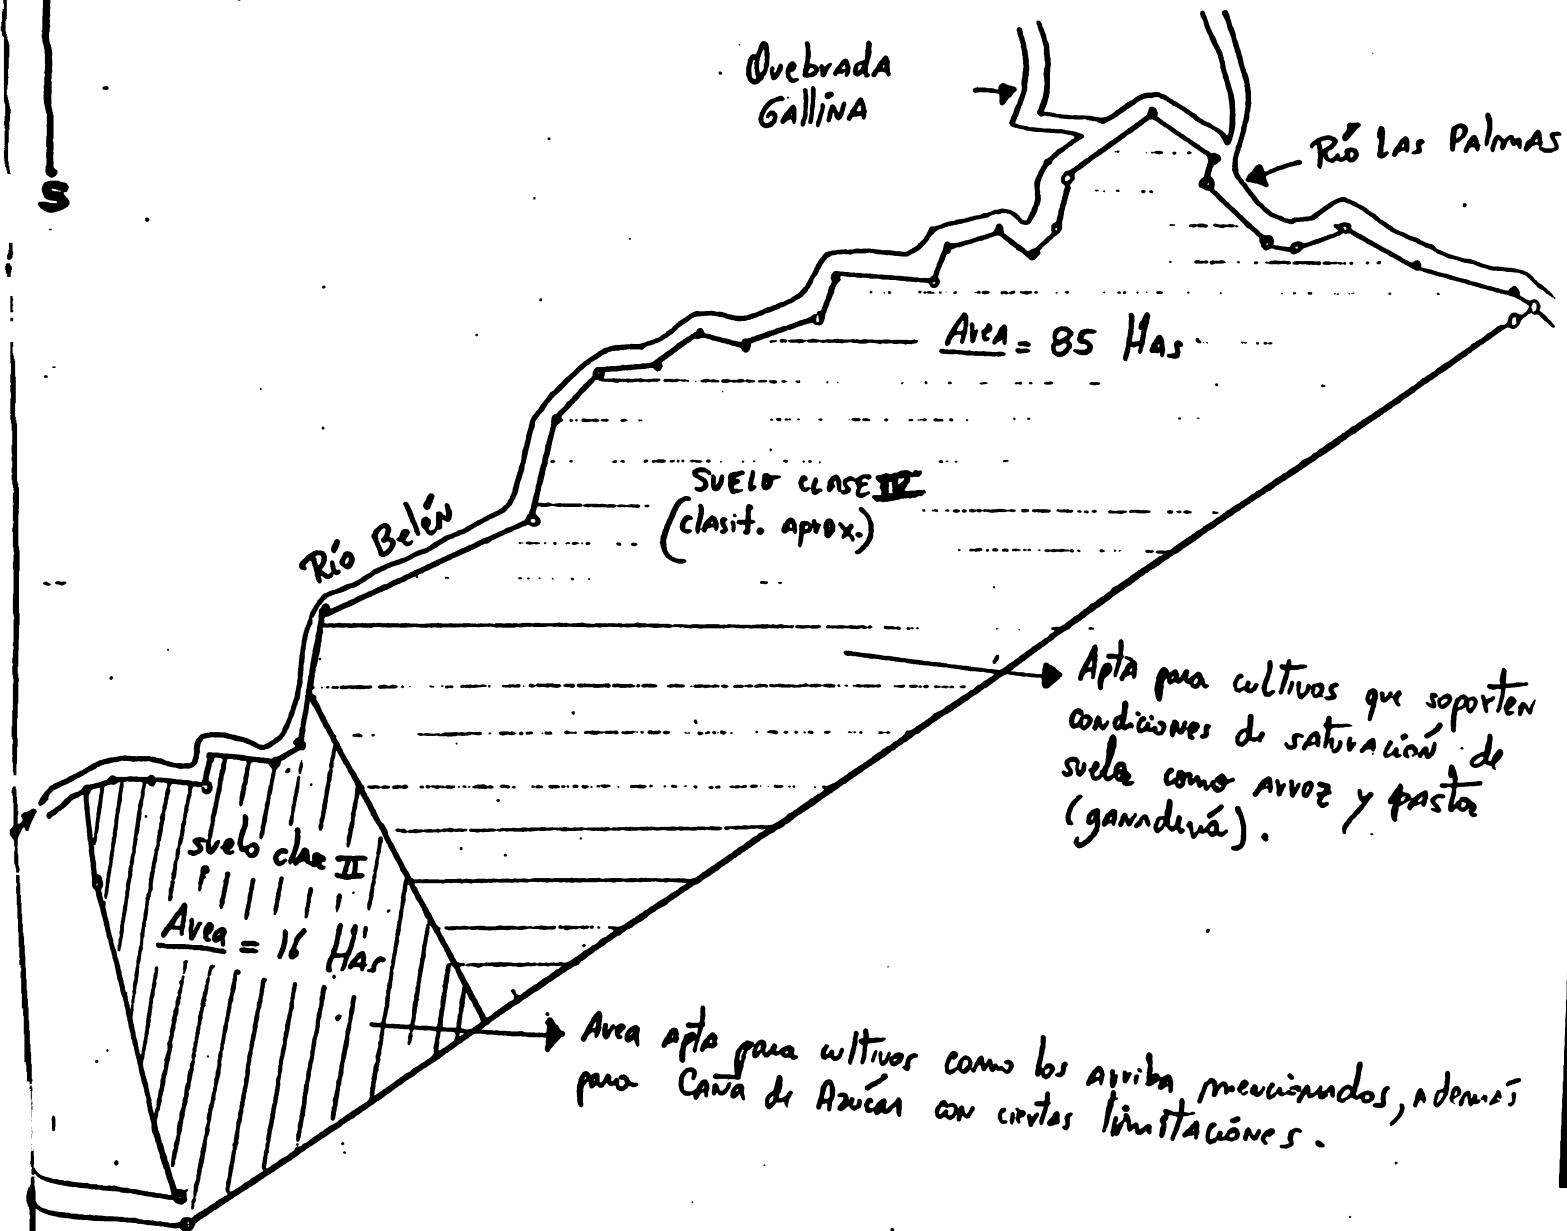 Quebrada
Gallina
Río Las Palmas
S
Area = 85 Has
SUELO CLASE IV
(clasif. aprox.)
Río Belén
Apta para cultivos que soporten
condiciones de saturación de
suelo como arroz y pastos
(ganadería).
suelo clase II
Area = 16 Has
Area apta para cultivos como los arriba mencionados, además
para Caña de Azúcar con ciertas limitaciónes.